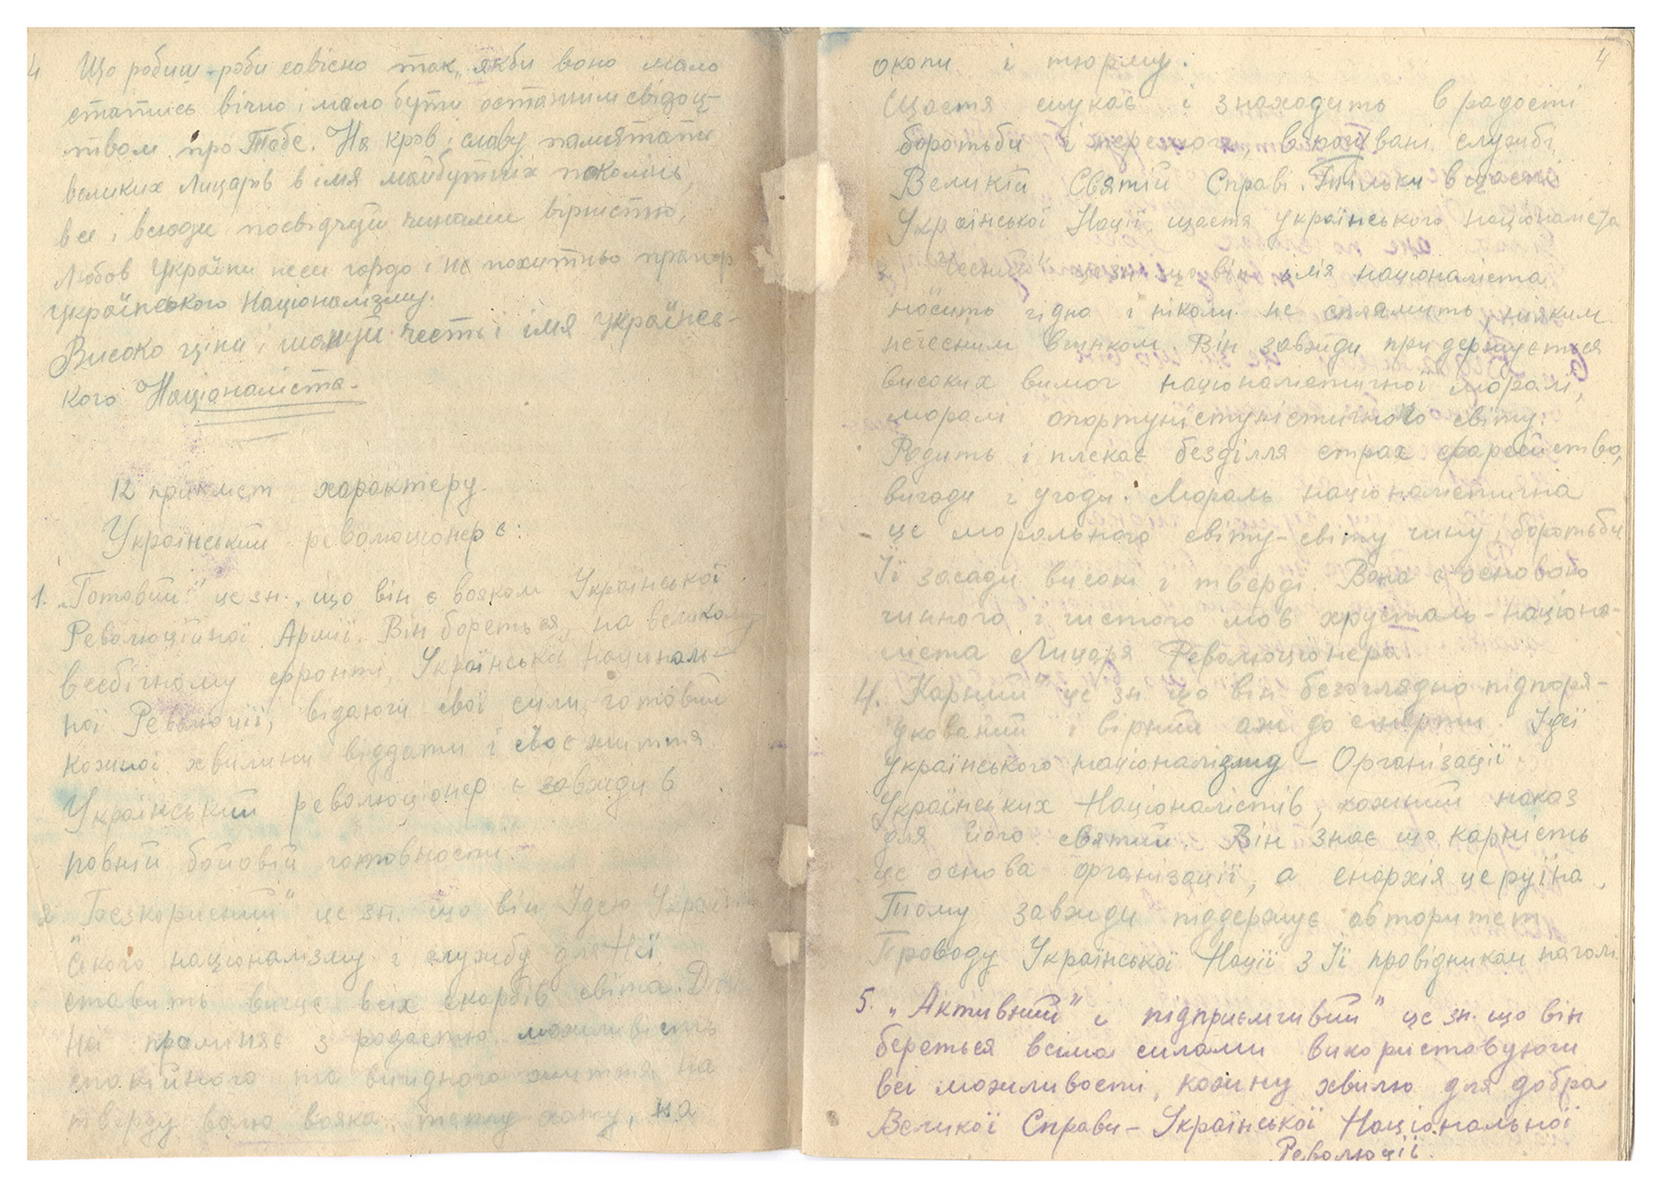 4 Що робиш роби совісно так, якби воно мало
статись вічно і мало бути останнім свідоц-
твом про Тебе. На кров і славу памятати
великих Лицарів в імя майбутніх поколінь,
все і всюди посвідчуй чинами вірністю,
Любов України неси гордо і не похитньо прапор
Українського Націоналізму.
Високо ціни і шануй честь і імя українсь-
кого Націоналіста.
12 прикмет характеру.
Український революціонер є:
1. „Готовий" це зн., що він є вояком Української
Революційної Армії. Він бореться на великому
всебічному фронті Української Націоналі-
ної Революції, відаючи свої сили, готовий
кожної хвилини віддати і своє життя
Український революціонер є завжди в
повній бойовій готовности.
2. Безкорисний" це зн. що він Ідею Україн
ського націоналізму і службу для Неї
ставить вище всіх скарбів світа. Для
неї проміняє з радостю можливість
спокійного та вигідного життя на
тверду волю вояка, теплу хату, на
4
окопи і тюрму.
Щастя шукає і знаходить в радості
боротьби і перемоги, в службі
Великій Святій Справі. Тільки в щасті
Української Нації щастя українського націоналіста
3. „Чесний" це зн. що він імя націоналіста
носить гідно і ніколи не сплямить ніяким
нечесним вчинком. Він завжди придержується
високих вимог націоналістичної моралі,
моралі опортуністуністичного світу.
Родить і плекає безділля страх фарисйство,
вигоди і угоди. Мораль націоналістична
це морального світу-світу чину, боротьби
Її засади високі і тверді. Вона є основою
чинного і чистого мов хрусталь-націона-
ліста Лицаря Революціонера
4. „Карний" це зн. що він безоглядно підпоря-
дкований і вірний аж до смерти Ідеї
українського націоналізму – Організації
Українських Націоналістів, кожний наказ
для його святий. Він знає що карність
це основа організації, а єнархія це руїна.
Тому завжди піддержує авторитет
Проводу Української Нації з Її провідником на чолі.
5. „Активний" і підприємчивий" це зн. що він
береться всіма силами використовуючи
всі можливості, кожну хвилю для добра
Великої Справи – Української Національної
Революції.